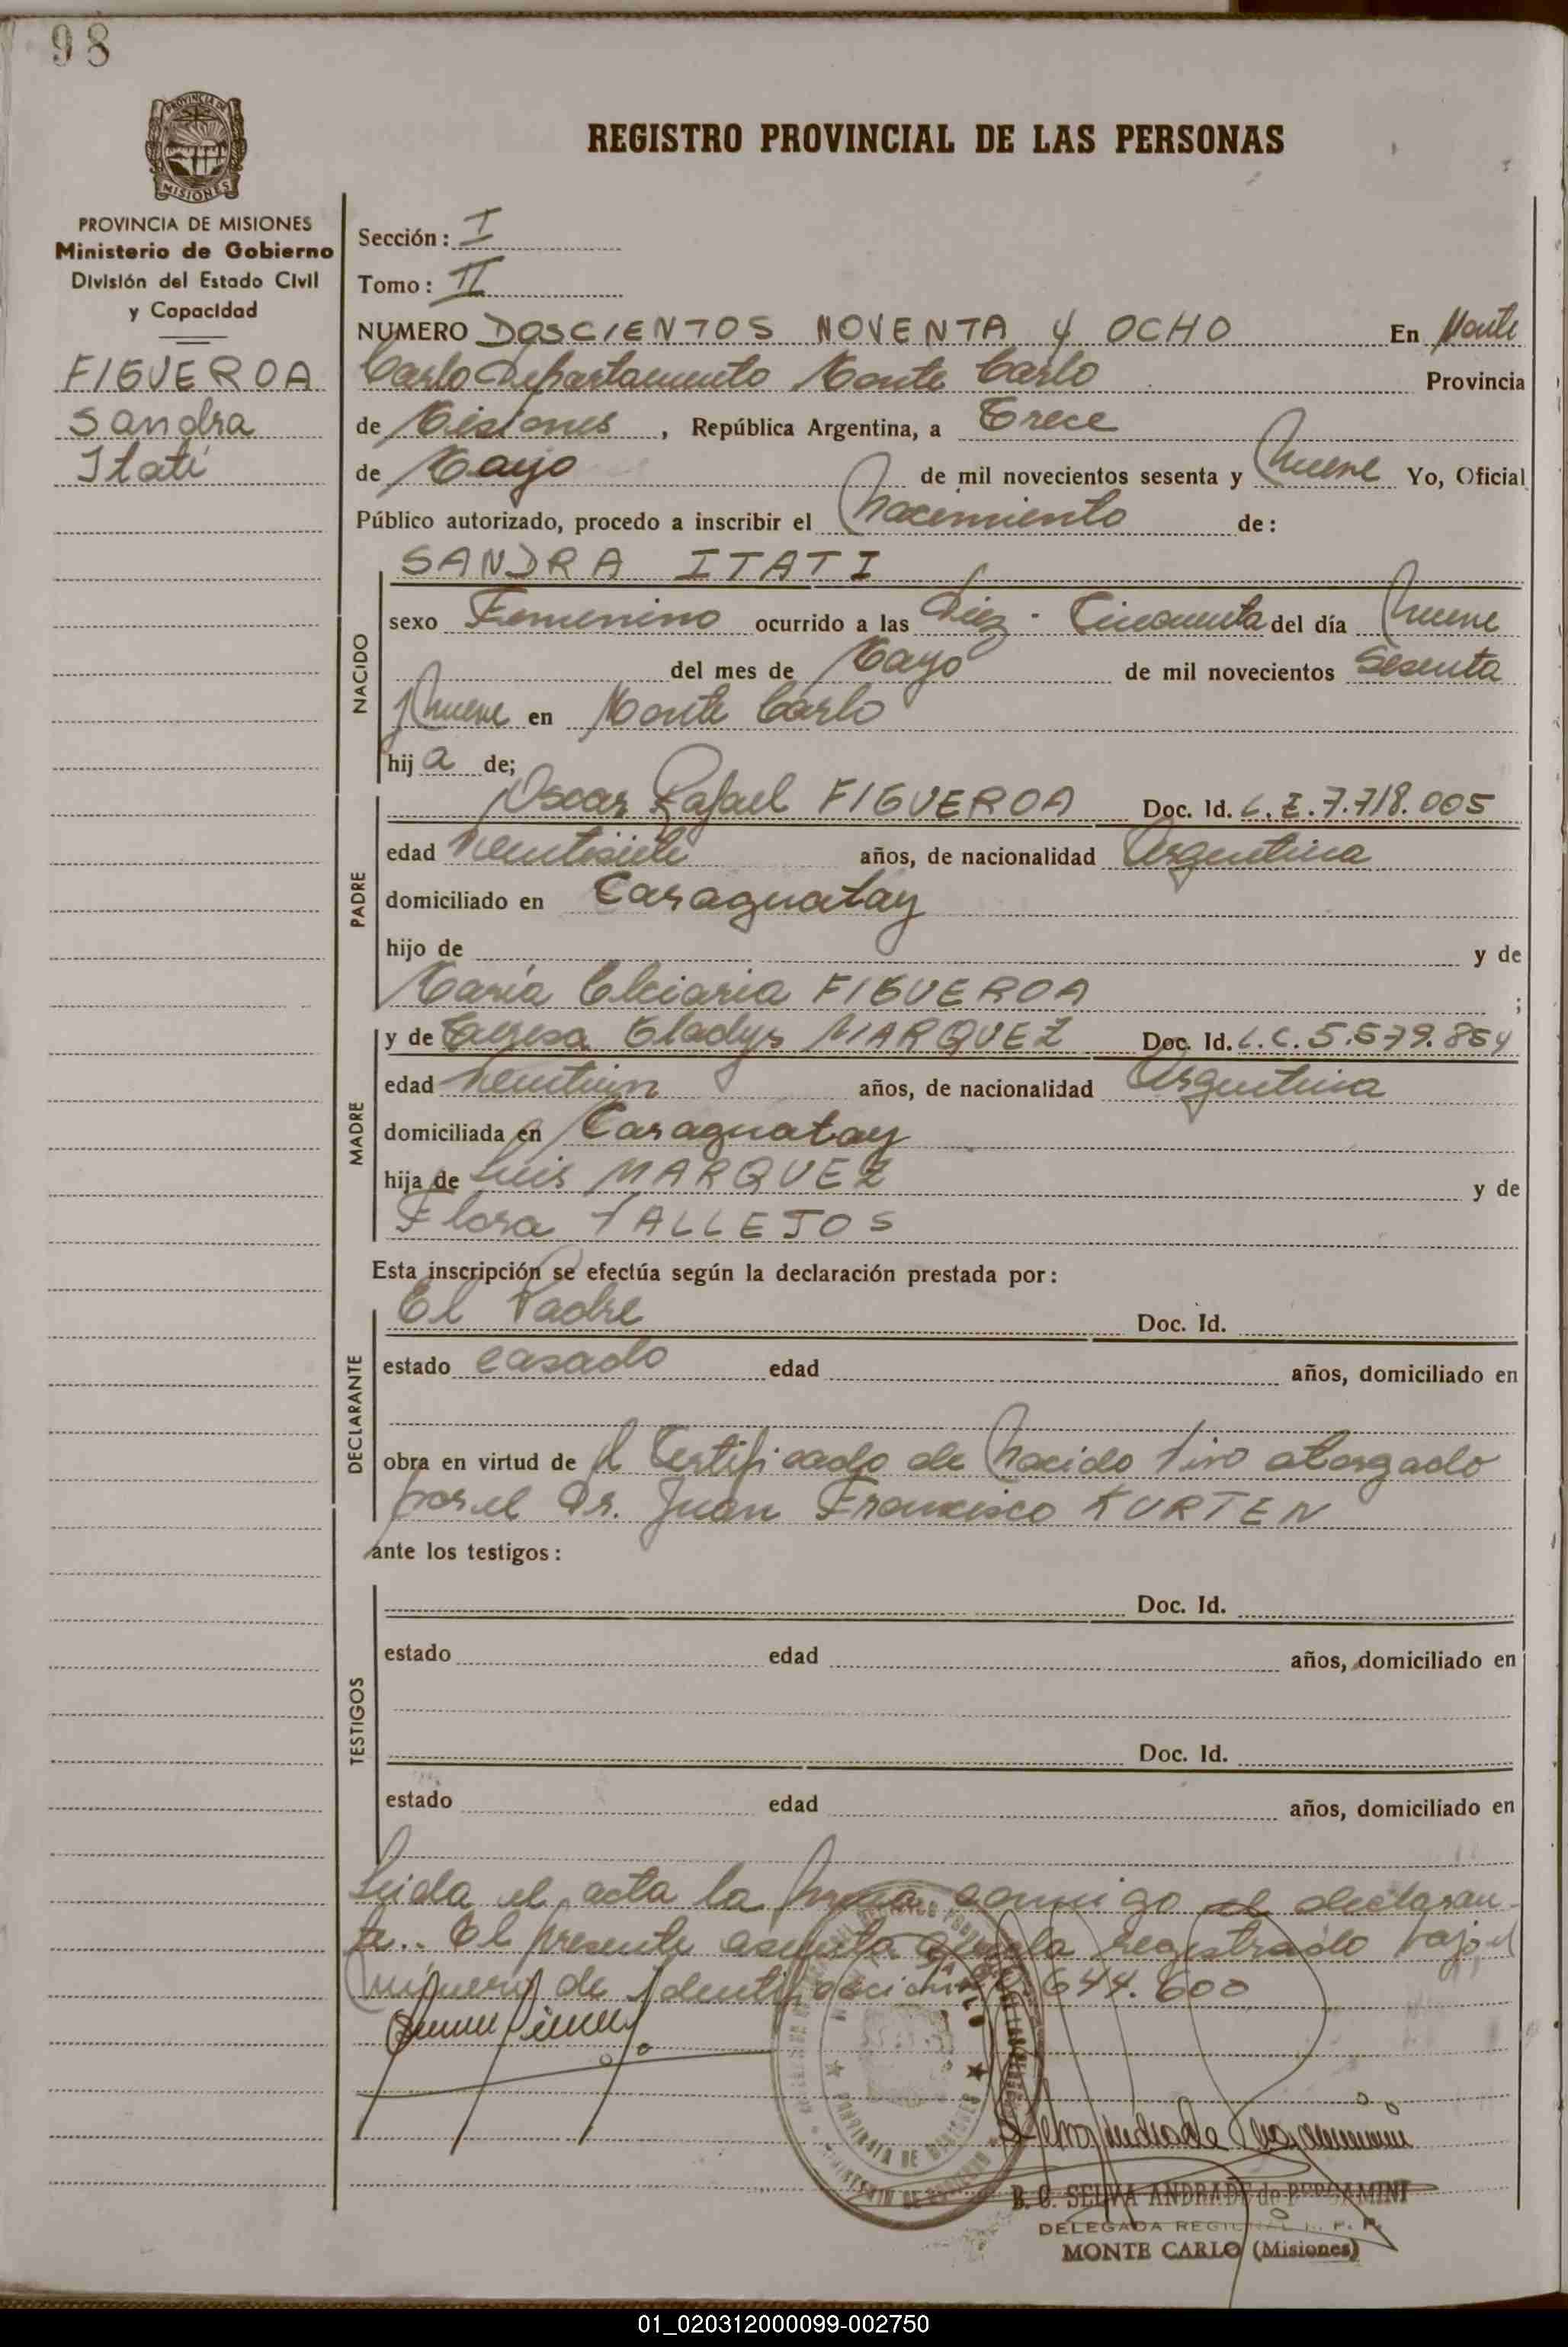 98
PROVINCIA DE MISIONES
PROVINCIA DE MISIONES
Ministerio de Gobierno
División del Estado Civil
y Capacidad
FIGUEROA
Sandra
Itatí
REGISTRO PROVINCIAL DE LAS PERSONAS
Sección: I
Tomo: II
NUMERO DOSCIENTOS NOVENTA Y OCHO En Monte
Carlo Departamento Monte Carlo Provincia
de Misiones, República Argentina, a Trece
de Mayo de mil novecientos sesenta y Nueve Yo, Oficial
Público autorizado, procedo a inscribir el Nacimiento de:
NACIDO
SANDRA ITATI
sexo Femenino ocurrido a las Diez - Cincuenta del día Nueve
del mes de Mayo de mil novecientos Sesenta
y Nueve en Monte Carlo
hija de;
PADRE
Oscar Rafael FIGUEROA Doc. Id. L.E. 7.718.005
edad Veintisiete años, de nacionalidad Argentina
domiciliado en Caraguatay
hijo de y de
María FIGUEROA ;
MADRE
y de Teresa Gladys MARQUEZ Doc. Id. L.C. 5.579.854
edad Veintiun años, de nacionalidad Argentina
domiciliada en Caraguatay
hija de Luis MARQUEZ y de
Flora VALLEJOS
Esta inscripción se efectúa según la declaración prestada por:
DECLARANTE
El Padre Doc. Id.
estado casado edad años, domiciliado en
obra en virtud de el Certificado de Nacido Vivo otorgado
por el Dr. Juan Francisco KURTEN
ante los testigos:
TESTIGOS
Doc. Id.
estado edad años, domiciliado en
Doc. Id.
estado edad años, domiciliado en
Leida el acta la firma conmigo el declaran-
te.. El presente asiento queda registrado bajo el
Número de Identificación 644.600
B. C. SELVA ANDRADE de BERGAMINI
DELEGADA REGIONAL R. P. P.
MONTE CARLO (Misiones)
01_020312000099-002750